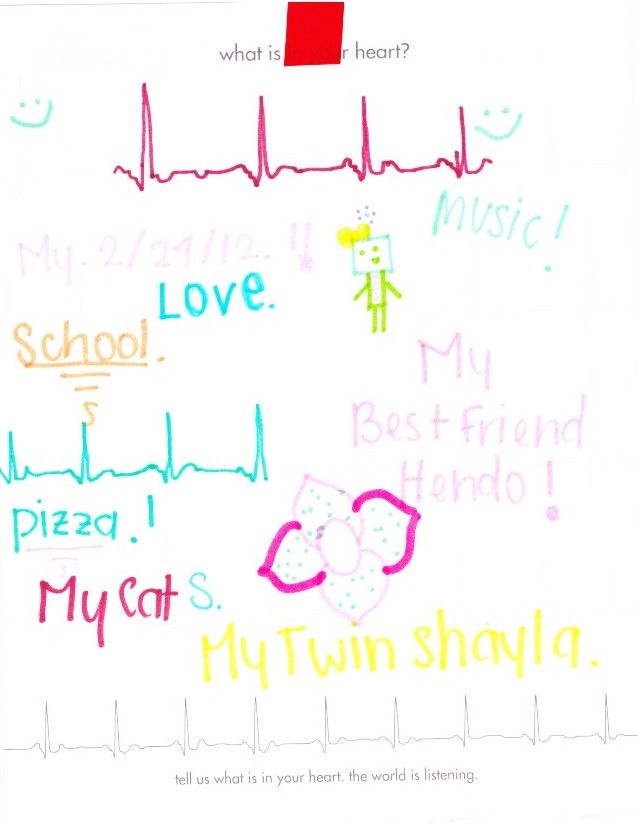 what is r heart?
Music!
My. 2/24/12. !!
Love.
School.
My
Best friend
Hendo!
pizza.!
My cats.
My Twin shayla.
tell us what is in your heart. the world is listening.